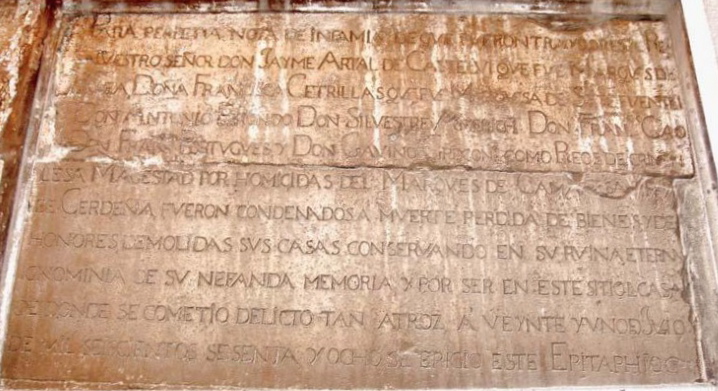 PARA PERPETVA NOTA DE INFAMIA DE QVE FVERON TRAYDORES
NVESTRO SEÑOR DON JAYME ARTAL DE CASTELVI QVE FVE MARQVES DE
DOÑA FRANCISCA CETRILLAS QVE FVE MARQVESA DE
DON ANTONIO DON SILVESTRE AYMERICH DON FRAN CAO
DON FRAN PORTVGVES Y DON GAVINO COMO REOS DE
LESA MAGESTAD POR HOMICIDAS DEL MARQVES DE
DE CERDENIA FVERON CONDENADOS A MVERTE PERDIDA DE BIENES Y DE
HONORES DEMOLIDAS SVS CASAS CONSERVANDO EN SV RVINA ETERN
IGNOMINIA DE SV NEFANDA MEMORIA Y POR SER EN ESTE SITIO LE CASA
DE DONDE SE COMETIO DELICTO TAN ATROZ A VEYNTE Y VNO DE IVLIO
DE MIL SEISCIENTOS SESENTA Y OCHO SE ERIGIO ESTE EPITAPHIO